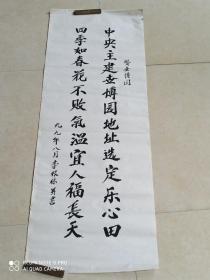 贺世博园
中央主建世博园地址选定乐心田
四季如春花不败气温宜人福长天
九九年八月李
书